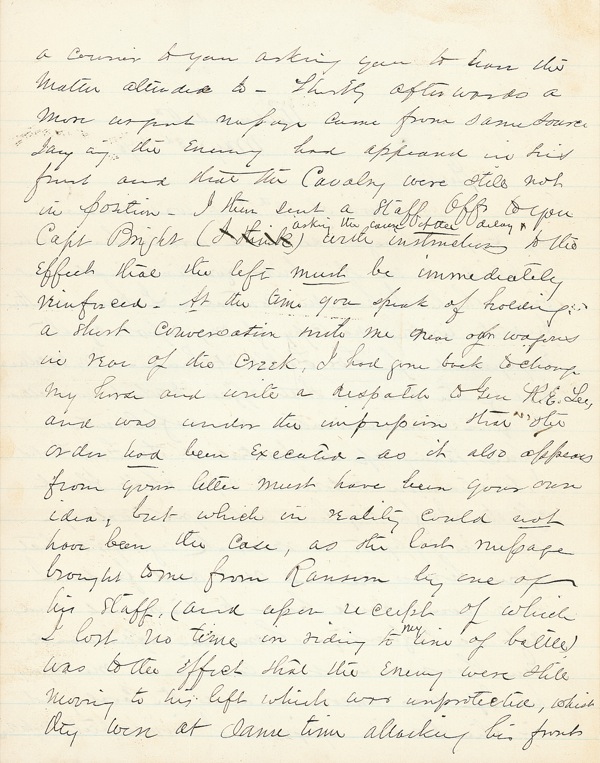 a courier to you asking you to have the
matter attended to - Shortly afterwards a
more urgent message came from same source
saying the Enemy had appeared in his
front and that the Cavalry were still not
in position - I then sent a Staff Offr to you
asking the cause of the delay &
Capt Bright (I think) with instructions to the
effect that the left must be immediately
reinforced - At the time you speak of holding
a short conversation with me near our wagons
in rear of the Creek, I had gone back to change
my horse and write a despatch to Gen R. E. Lee,
and was under the impression that the
order had been executed - as it also appears
from your letter must have been your own
idea, but which in reality could not
have been the case, as the last message
brought to me from Ransom by one of
his staff, (and upon receipt of which
I lost no time in riding to my line of battle)
was to the effect that the Enemy were still
moving to his left which was unprotected, whilst
they were at same time attacking his front